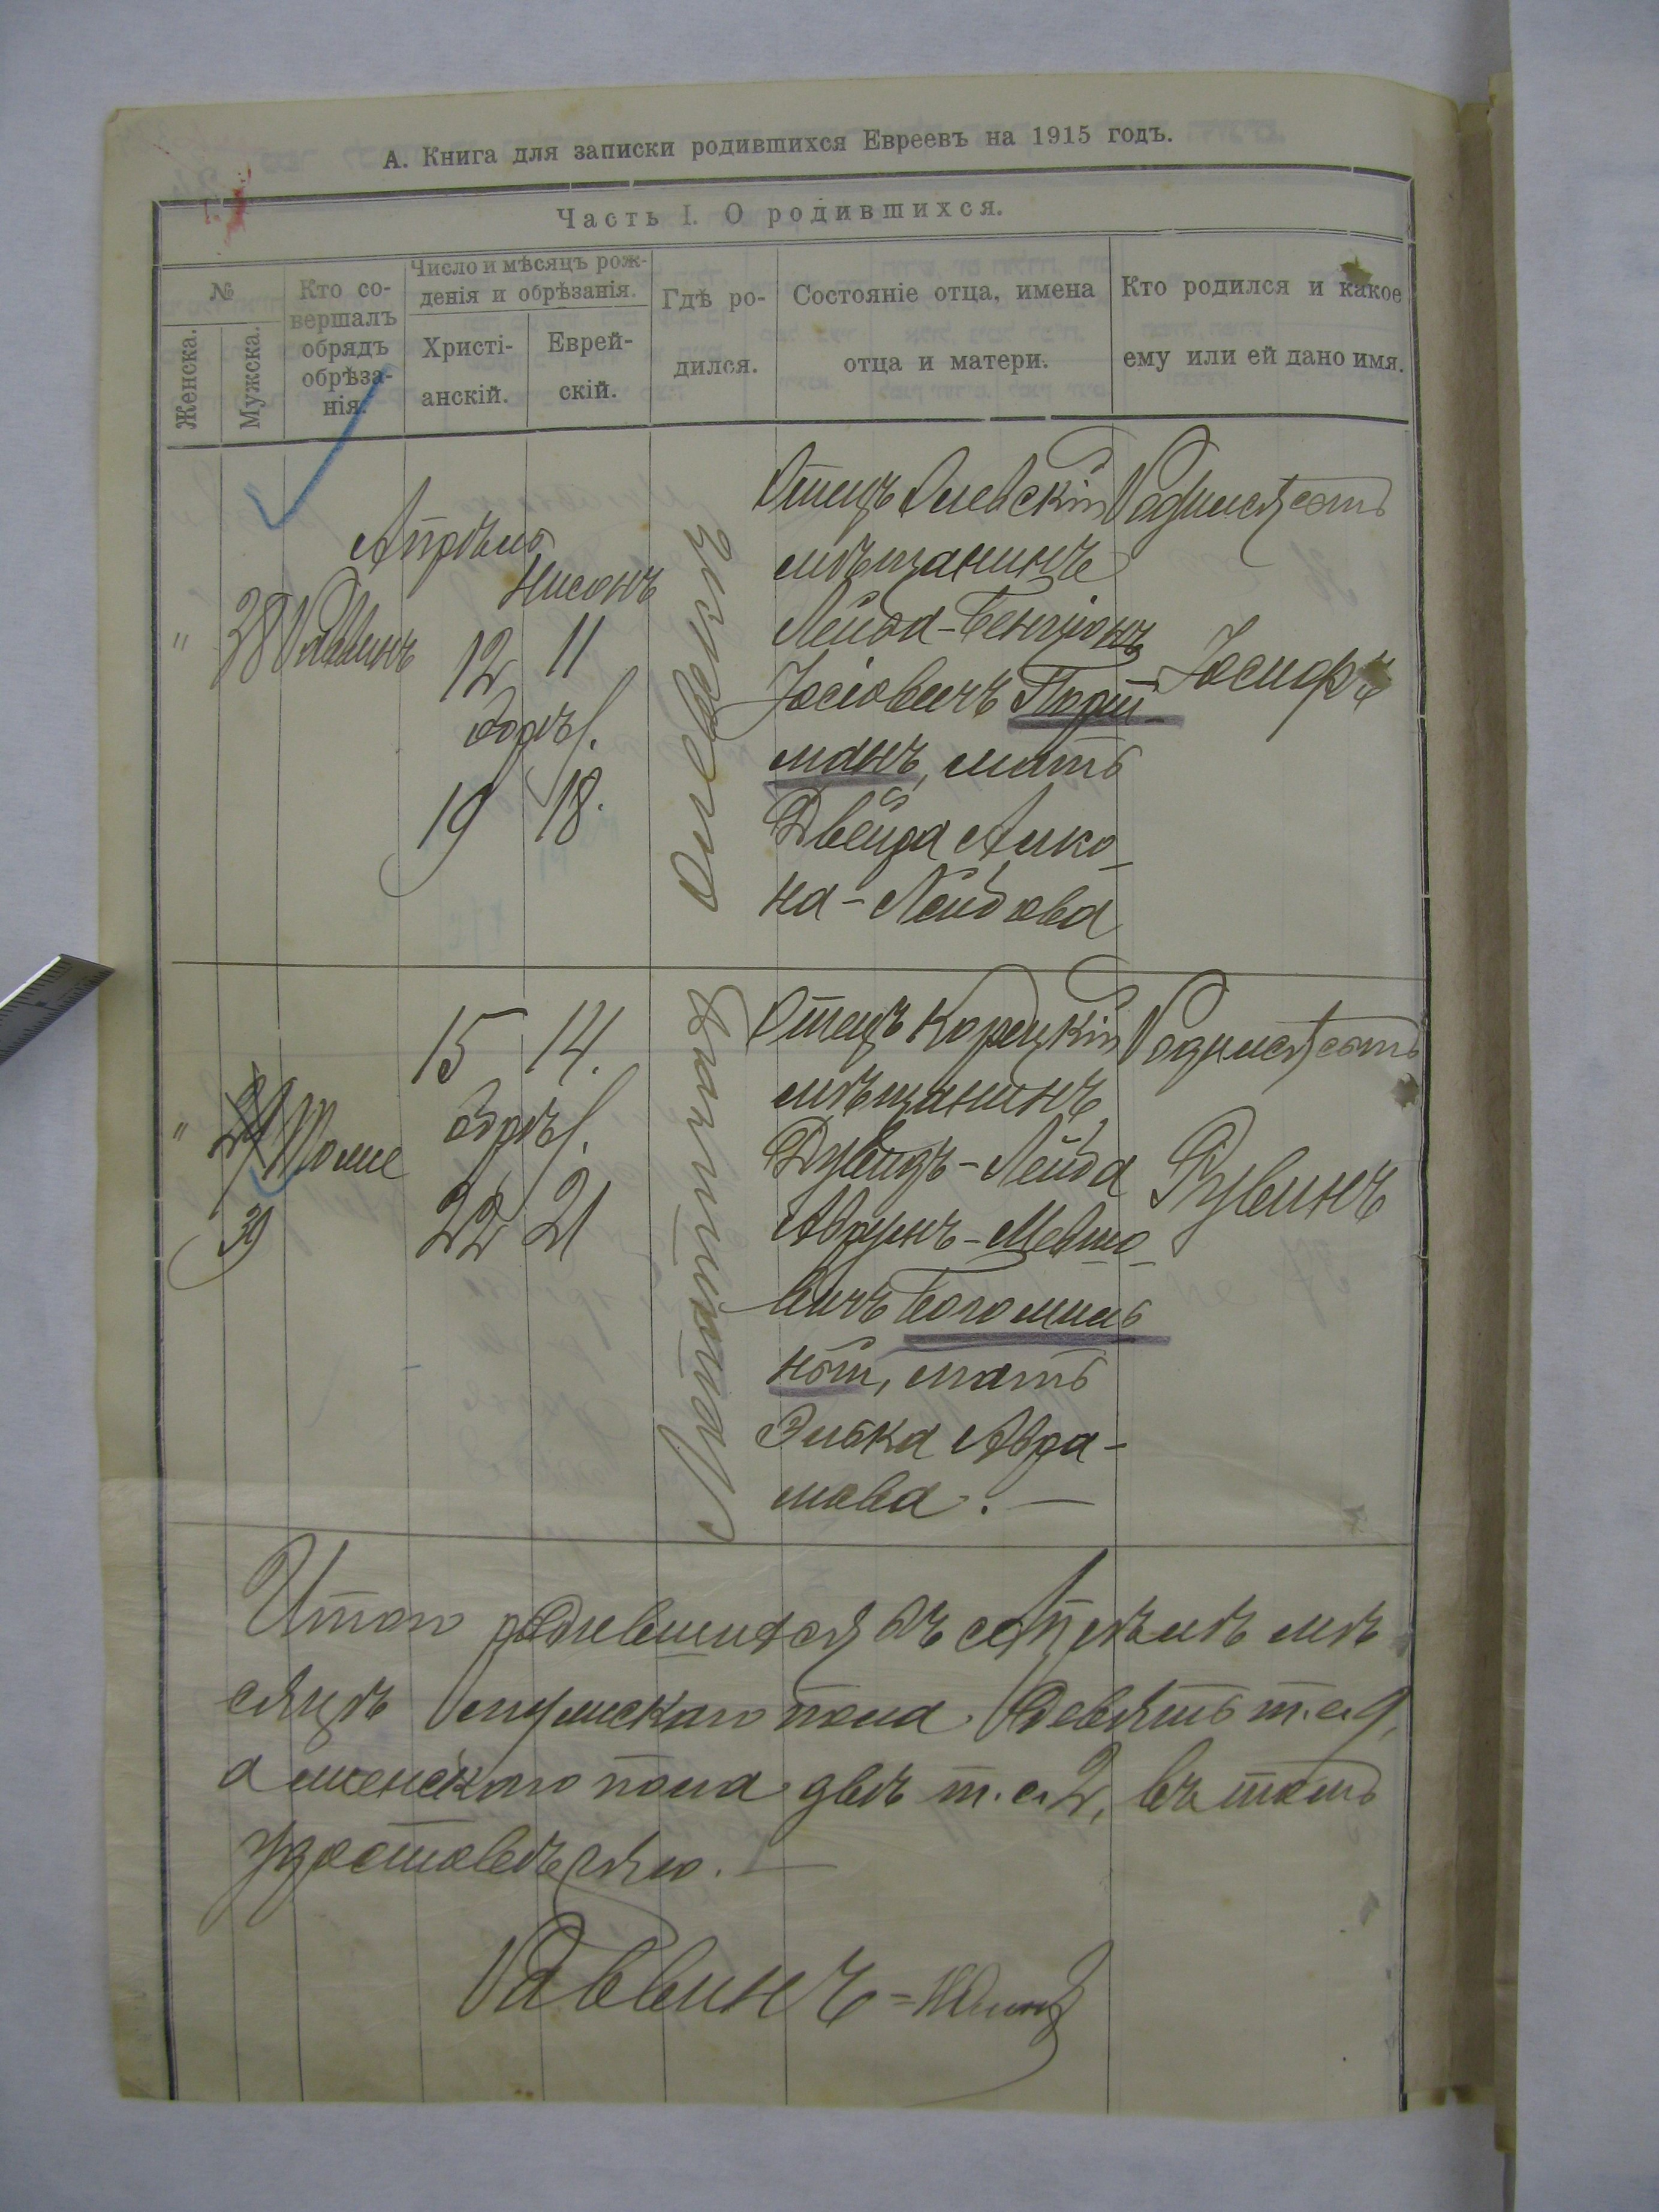 А. Книга для записки родившихся Евреевъ на 1915 годъ.
Часть I. О родившихся.
№
Женска.
Мужска.
Кто со-
вершалъ
обрядъ
обрѣза-
нія.
Число и мѣсяцъ рож-
денія и обрѣзанія.
Христі-
анскій.
Еврей-
скій.
Гдѣ ро-
дился.
Состояніе отца, имена
отца и матери.
Кто родился и какое
ему или ей дано имя.
"
38
Раввинъ
Апрѣль
Нисонъ
12 11
обрѣз.
19 18.
Олевскъ
Отецъ Олевскій
мѣщанинъ
Лейба-Бенціонъ
Іосіовичъ Порт-
манъ, мать
Двейра
на-Лейбова
Родился сынъ
Іосифъ
"
39
15 14.
обрѣз.
22 21
Отецъ Корецкій
мѣщанинъ
Дувидъ-Лейба
Аврумъ-
вичъ Богомоль
ный, мать
Элька Авра-
мова. —
Родился сынъ
Рувинъ
Итого родившихся въ Апрѣлѣ мѣ
сяцѣ мужскаго пола девять т.е. 9,
а женскаго пола двѣ т.е. 2, въ томъ
удостовѣряю. —
Раввинъ =